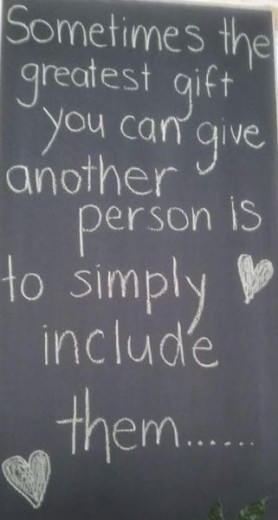 Sometimes the
greatest gift
you can give
another
person is
to simply
include
them......